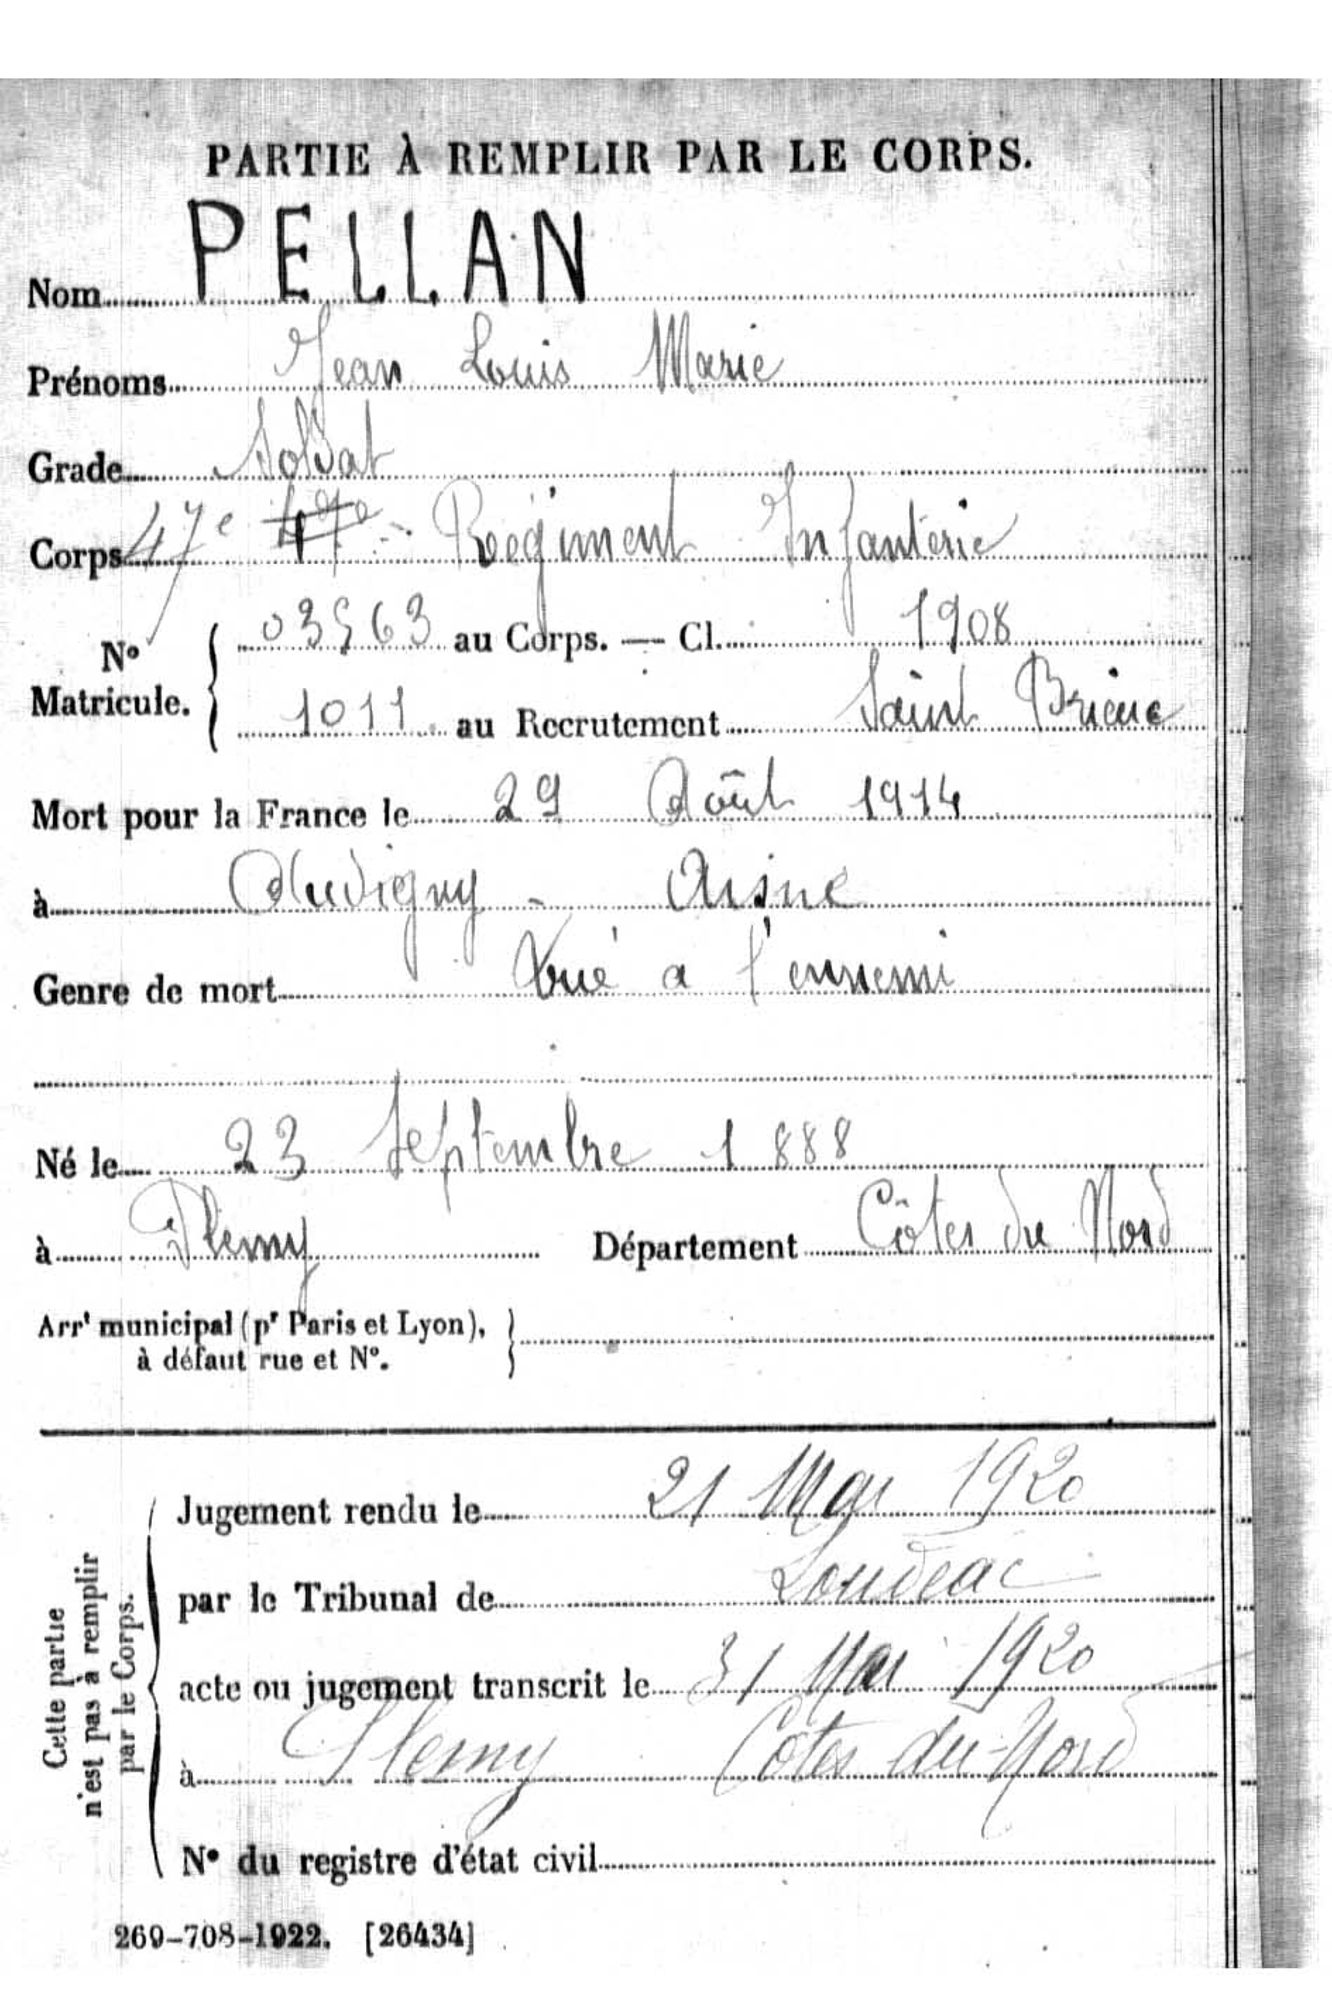 PARTIE À REMPLIR PAR LE CORPS.
Nom PELLAN
Prénoms Jean Louis Marie
Grade Soldat
Corps 47e Régiment Infanterie
N° Matricule. { 03563 au Corps. — Cl. 1908
1011 au Recrutement Saint Brieuc
Mort pour la France le 29 Août 1914
à Audigny - Aisne
Genre de mort Tué a l'ennemi
Né le 23 Septembre 1888
à Plemy Département Côtes du Nord
Arrt municipal (pr Paris et Lyon), }
à défaut rue et N°.
Cette partie n'est pas à remplir par le Corps.
Jugement rendu le 21 Mai 1920
par le Tribunal de Loudeac
acte ou jugement transcrit le 31 Mai 1920
à Plemy Côtes du Nord
N° du registre d'état civil
269-708-1922. [26434]